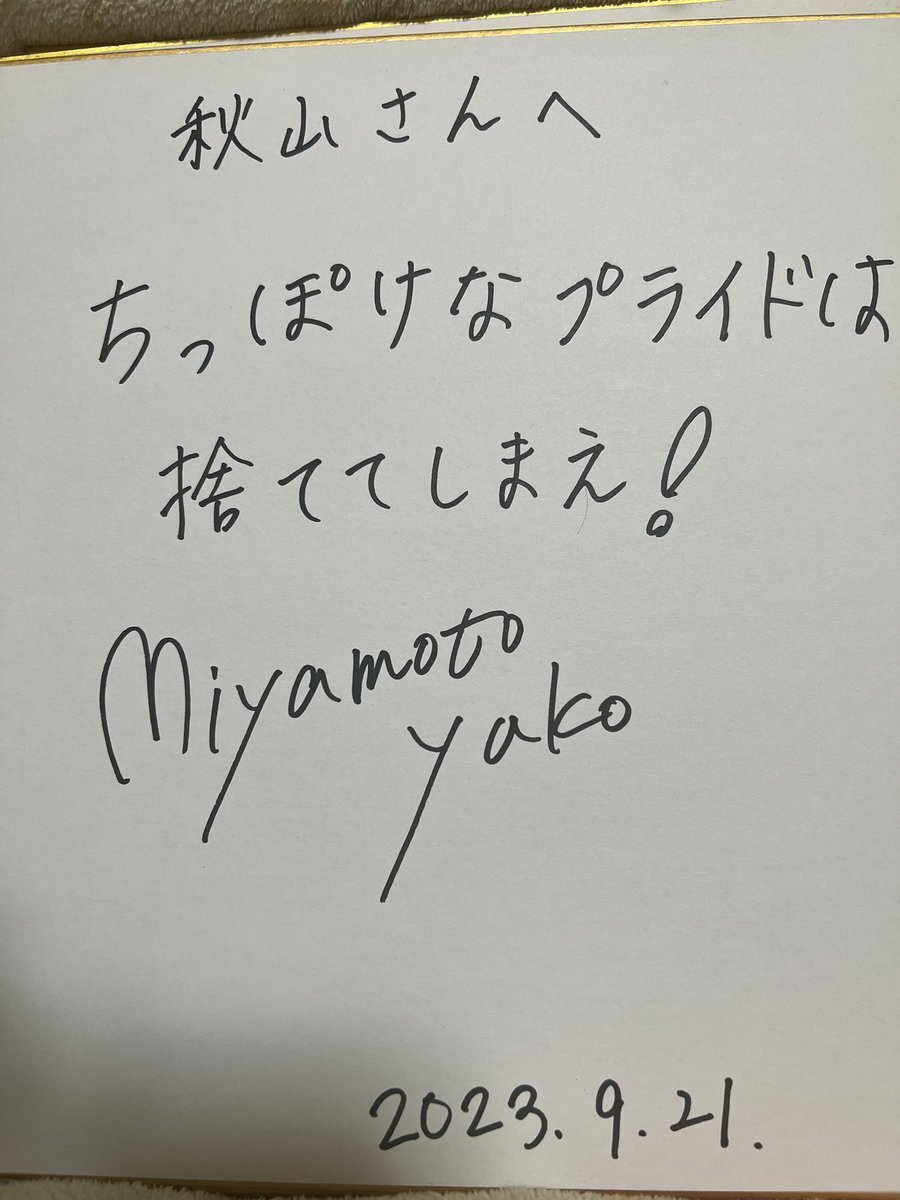 秋山さんへ
ちっぽけなプライドは
捨ててしまえ!
Miyamoto
yako
2023.9.21.